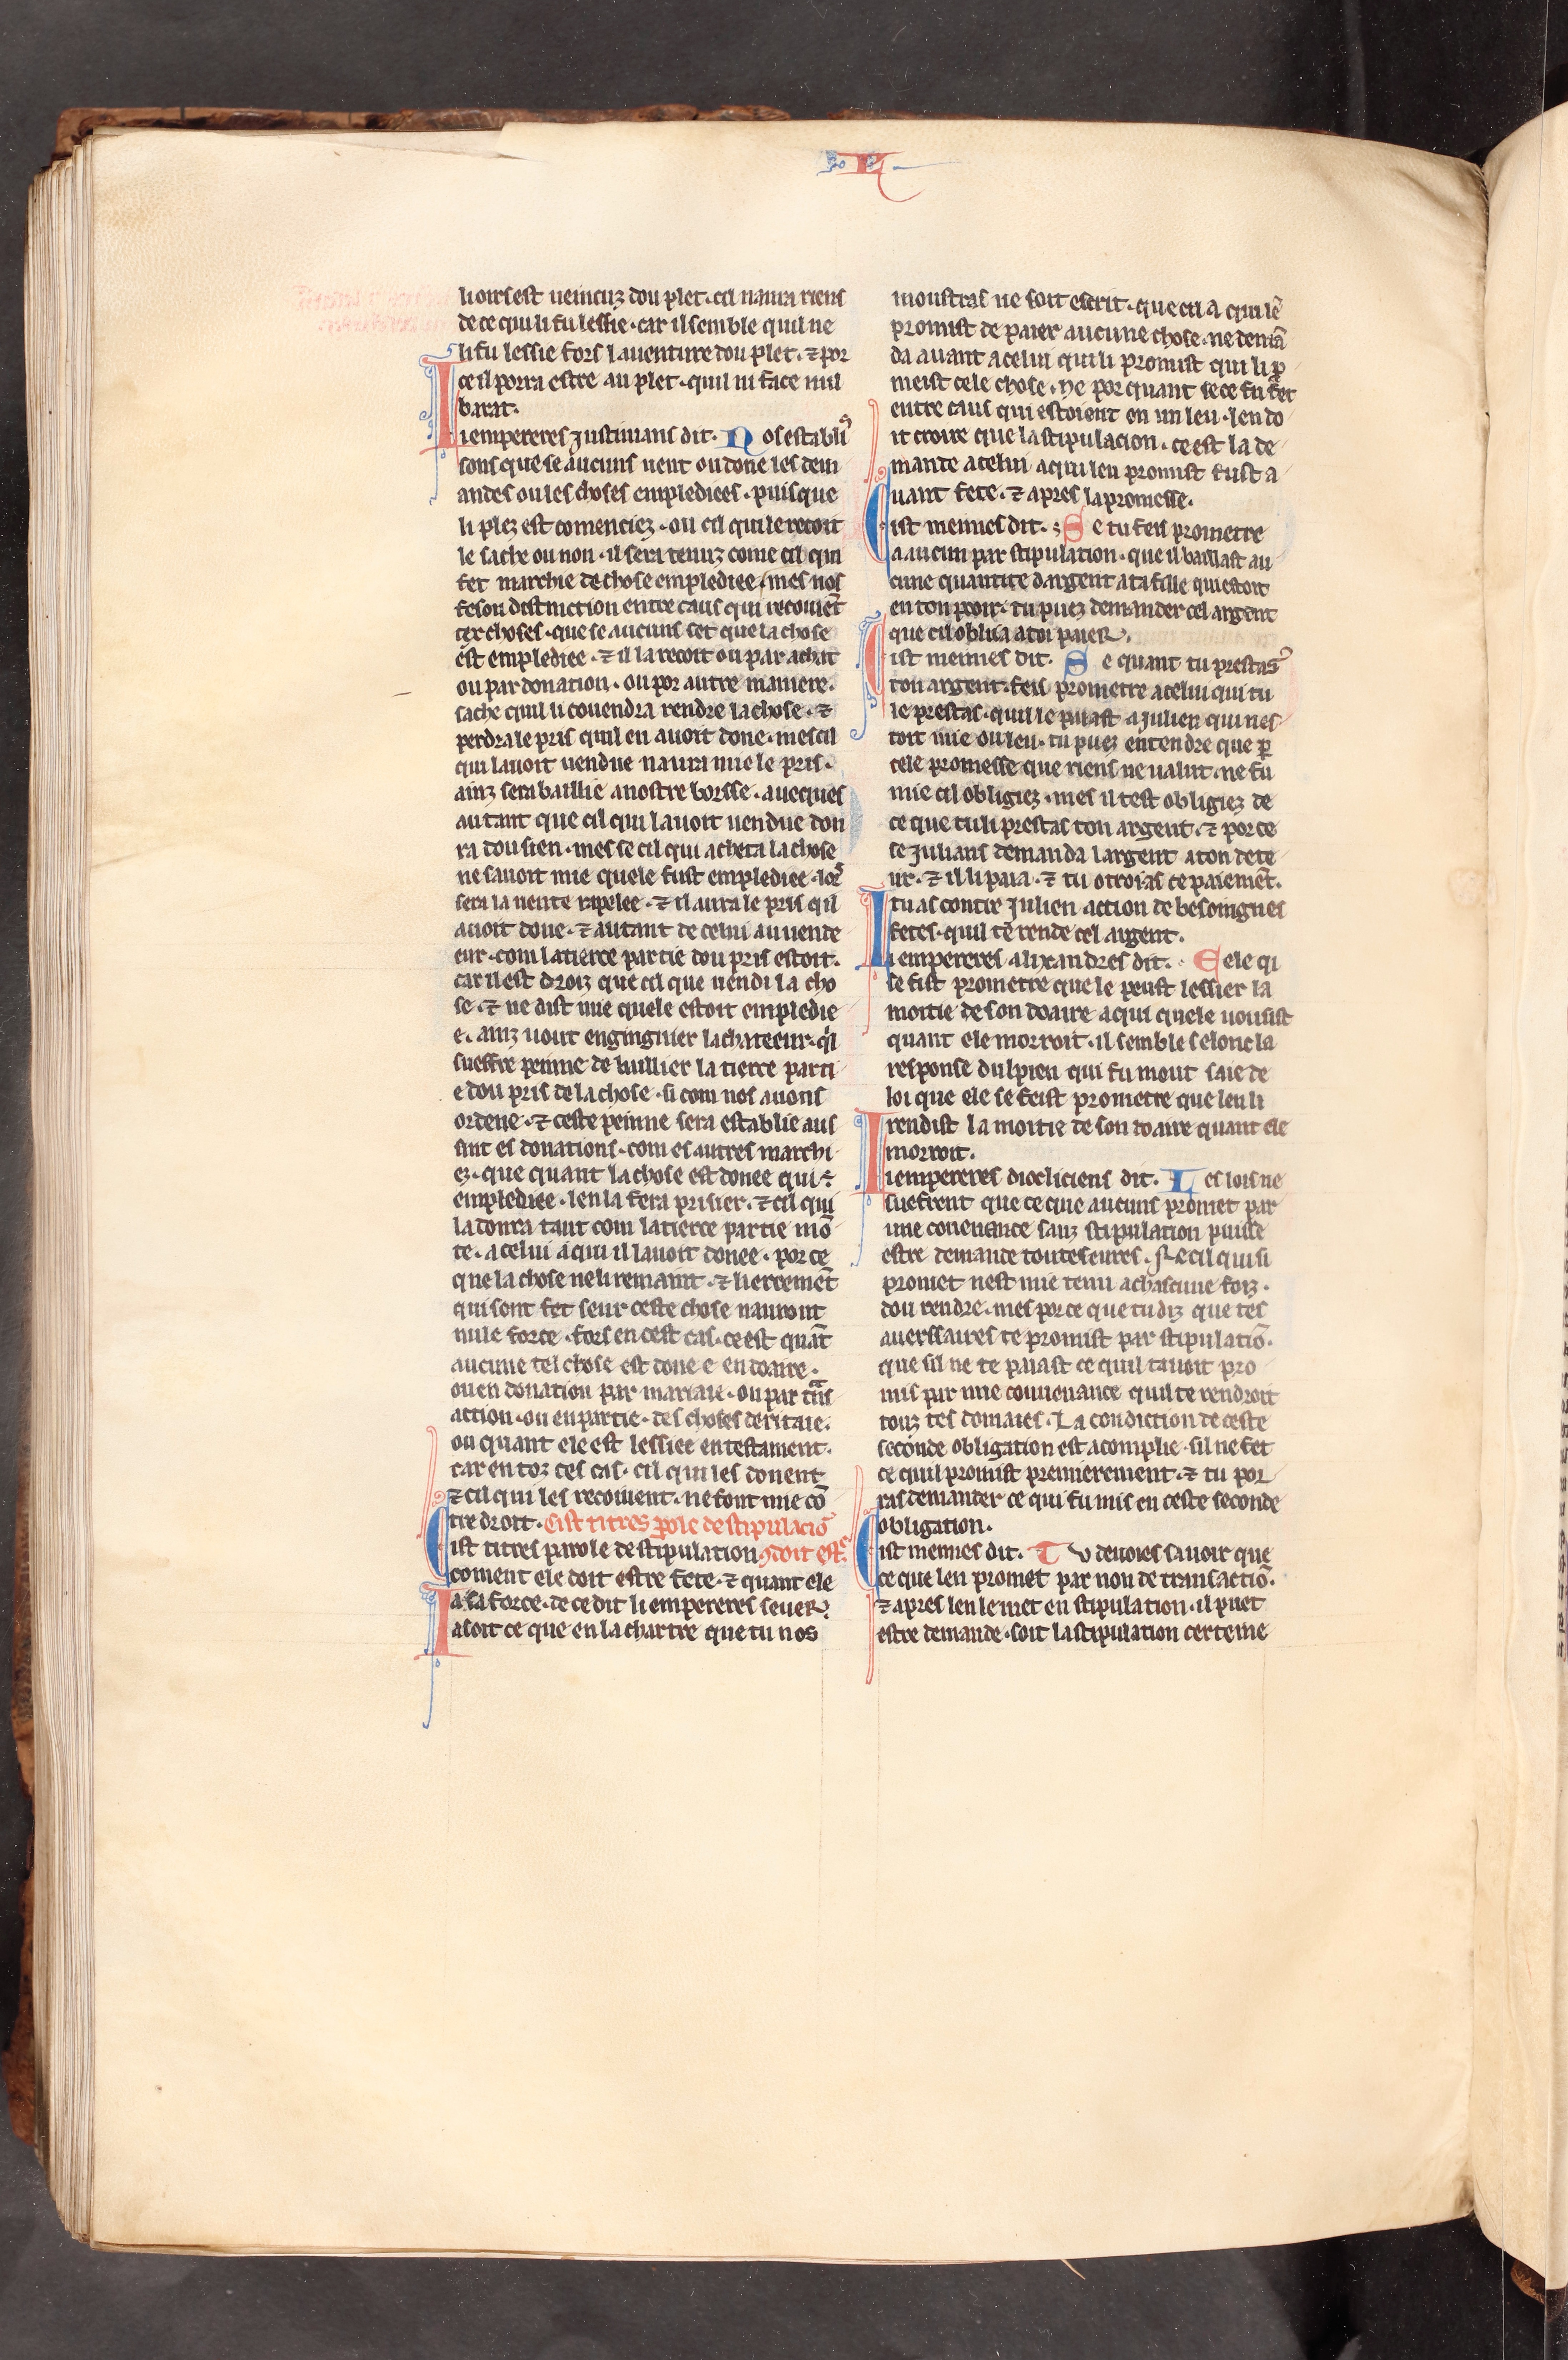 L
li oirs est ueincuz dou plet. cil naura riens
de ce qui li fu lessie. car il semble quil ne
li fu lessie fors lauenture dou plet. ⁊ por
ce il porra estre au plet. quil ni face nul
barat.
Li empereres Justinians dit. Nos establiſ
sons que se aucuns uent ou done les dem
andes ou les choses empledices. puis que
li plez est comenciez. ou cil qui le recoit
le sache ou non. il sera tenuz come cil qui
fet marchie de chose emplediee. mes nos
feson distinction entre caus qui recoiuēt
tex choses. que se aucuns set que la chose
est emplediee. ⁊ il la recoit ou par achat
ou par donation. ou por autre maniere.
sache quil li couendra rendre la chose. ⁊
perdra le pris quil en auoit done. mes cil
qui lauoit uendue naura mie le pris.
ainz sera baillie a nostre borsse. auecques
autant que cil qui lauoit uendue don
ra dou sien. mes se cil qui acheta la chose
ne sauoit mie quele fust emplediee. lors
sera la uente rapelee. ⁊ il aura le pris qil
auoit done. ⁊ autant de celui au uende
eur. com la tierce partie dou pris estoit.
car il est droiz que cil que uendi la cho
se. ⁊ ne dist mie quele estoit empledie
e. ainz uout enginguier lachateeur. qͥl
sueffre peinne de baillier la tierce parti
e dou pris de la chose. si com nos auons
ordene. ⁊ ceste peinne sera establie aus
sint es donations. com es autres marchi
ez. que quant la chose est donee qui ē
emplediee. len la fera prisier. ⁊ cil qui
la donra tant com la tierce partie mō
te. a celui a qui il lauoit donee. por ce
que la chose ne li remaint. ⁊ li ercemēt
qui sont fet seur ceste chose nauront
nule force. fors en cest cas. ce est quāt
aucune tel chose est donee en doaire.
ou en donation par mariaie. ou par trās
action. ou en partie. des choses deritaie.
ou quant ele est lessiee en testament.
car en toz ces cas. cil qui les donent
⁊ cil qui les recoiuent. ne font mie cō
tre droit. Cist titres ꝑole de stipulaciō
Cist titres parole de stipulation ꝯ doit estͤ.
coment ele doit estre fete. ⁊ quant ele
a sa force. de ce dit li empereres seuers.
Ia soit ce que en la chartre que tu nos
monstras ne soit escrit. que cil a qui lē
promist de paier aucune chose. ne demā
da auant a celui qui li promist qui li ꝓ
meist cele chose. ne por quant se ce fu fet
entre caus qui estoient en un leu. len do
it croire que la stipulacion. ce est la de
mande a celui a qui leu promist fust a
uant fete. ⁊ apres la promesse.
Cist meimes dit. Se tu feis prometre
a aucun par stipulation. que il baillast au
cune quantite dargent a ta fille qui estoit
en ton pooir. tu puez demander cel argent
que cil obliia a toi paier.
Cist meimes dit. Se quant tu prestas
ton argent. feis prometre a celui qui tu
le prestas. quil le paiast a Julien qui nes
toit mie ou leu. tu puez entendre que ꝑ
cele promesse que riens ne ualut. ne fu
mie cil obligiez. mes il test obligiez de
ce que tu li prestas ton argent. ⁊ por ce
se Julians demanda largent a ton dete
ur. ⁊ il li paia. ⁊ tu otroias ce paiemēt.
tu as contre Julien action de besoingnes
fetes. quil te rende cel argent.
Li empereres alixandres dit. Cele qi
se fist prometre que le peust lessier la
moitie de son doaire a qui quele uousist
quant ele morroit. il semble selonc la
response dulpien qui fu mout saie de
loi que ele se feist prometre que leu li
rendist la moitie de son doaire quant ele
morroit.
Li empereres diocliciens dit. Les lois ne
suefrent que ce que aucuns promet par
une couenance sanz stipulation puisse
estre demande toutes eures. Se cil qui si
promet nest mie tenu a chascune foiz.
dou rendre. mes por ce que tu diz que tes
auerssaires te promist par stipulatiō.
que sil ne te paiast ce quil tauoit pro
mis par une conuenance quil te rendroit
touz tes domaies. La condiction de ceste
seconde obligation est acomplie. sil ne fet
ce quil promist premierement. ⁊ tu por
ras demander ce qui fu mis en ceste seconde
obligation.
Cist meimes dit. Tu deuoies sauoir que
ce que len promet par non de transactiō.
⁊ apres len le met en stipulation. il puet
estre demande. soit la stipulation certeine